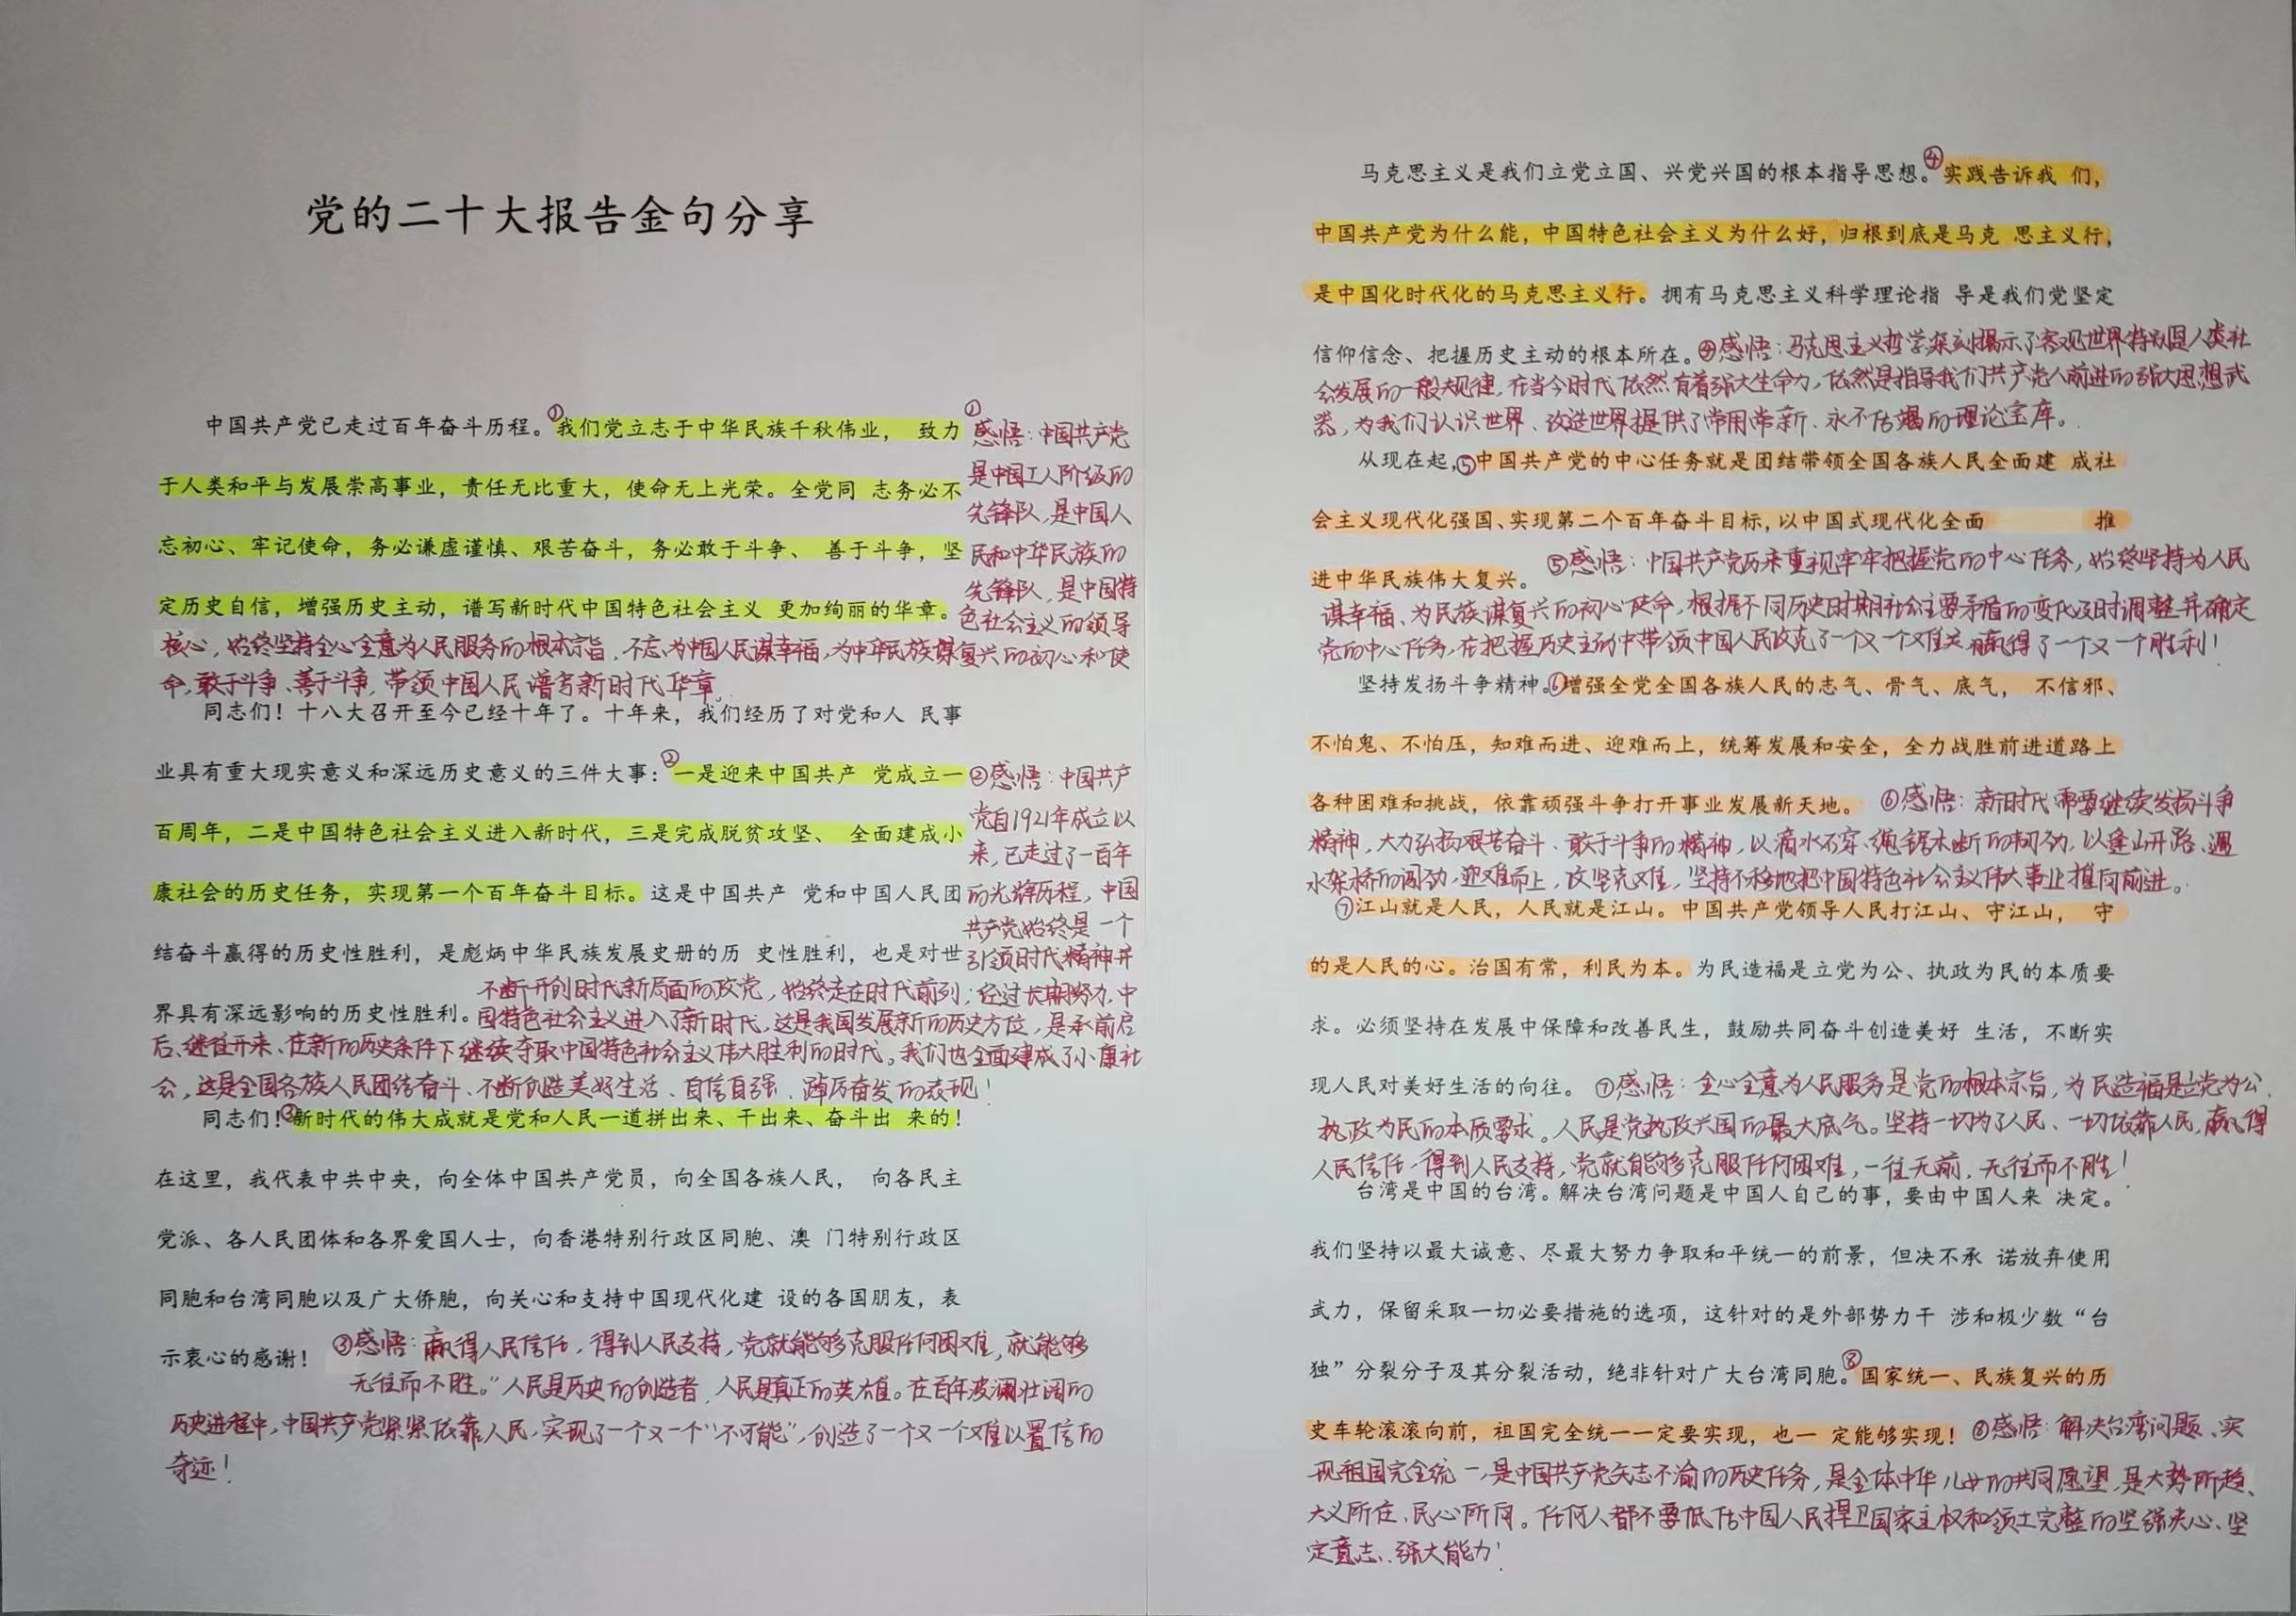 党的二十大报告金句分享
中国共产党已走过百年奋斗历程。①我们党立志于中华民族千秋伟业， 致力
于人类和平与发展崇高事业，责任无比重大，使命无上光荣。全党同 志务必不
忘初心、牢记使命，务必谦虚谨慎、艰苦奋斗，务必敢于斗争、 善于斗争，坚
定历史自信，增强历史主动，谱写新时代中国特色社会主义 更加绚丽的华章。
①
感悟：中国共产党
是中国工人阶级的
先锋队，是中国人
民和中华民族的
先锋队，是中国特
色社会主义的领导
核心，始终坚持全心全意为人民服务的根本宗旨，不忘为中国人民谋幸福，为中华民族谋复兴的初心和使
命，敢于斗争、善于斗争，带领中国人民谱写新时代华章。
同志们！十八大召开至今已经十年了。十年来，我们经历了对党和人 民事
业具有重大现实意义和深远历史意义的三件大事：②一是迎来中国共产 党成立一
百周年，二是中国特色社会主义进入新时代，三是完成脱贫攻坚、 全面建成小
康社会的历史任务，实现第一个百年奋斗目标。这是中国共产 党和中国人民团
结奋斗赢得的历史性胜利，是彪炳中华民族发展史册的历 史性胜利，也是对世
界具有深远影响的历史性胜利。
②感悟：中国共产
党自1921年成立以
来，已走过了一百年
的光辉历程，中国
共产党始终是一个
引领时代精神并
不断开创时代新局面的政党，始终走在时代前列；经过长期努力，中
国特色社会主义进入了新时代，这是我国发展新的历史方位，是承前启
后、继往开来、在新的历史条件下继续夺取中国特色社会主义伟大胜利的时代。我们也全面建成了小康社
会，这是全国各族人民团结奋斗、不断创造美好生活、自信自强、踔厉奋发的表现！
同志们！③新时代的伟大成就是党和人民一道拼出来、干出来、奋斗出 来的！
在这里，我代表中共中央，向全体中国共产党员，向全国各族人民， 向各民主
党派、各人民团体和各界爱国人士，向香港特别行政区同胞、澳 门特别行政区
同胞和台湾同胞以及广大侨胞，向关心和支持中国现代化建 设的各国朋友，表
示衷心的感谢！
③感悟：赢得人民信任，得到人民支持，党就能够克服任何困难，就能够
无往而不胜。”人民是历史的创造者，人民是真正的英雄。在百年波澜壮阔的
历史进程中，中国共产党紧紧依靠人民，实现了一个又一个“不可能”，创造了一个又一个难以置信的
奇迹！
马克思主义是我们立党立国、兴党兴国的根本指导思想。④实践告诉我 们，
中国共产党为什么能，中国特色社会主义为什么好，归根到底是马克 思主义行，
是中国化时代化的马克思主义行。拥有马克思主义科学理论指 导是我们党坚定
信仰信念、把握历史主动的根本所在。④感悟：马克思主义哲学深刻揭示了客观世界特别是人类社
会发展的一般规律，在当今时代依然有着强大生命力，依然是指导我们共产党人前进的强大思想武
器，为我们认识世界、改造世界提供了常用常新、永不枯竭的理论宝库。
从现在起，⑤中国共产党的中心任务就是团结带领全国各族人民全面建 成社
会主义现代化强国、实现第二个百年奋斗目标，以中国式现代化全面 推
进中华民族伟大复兴。⑤感悟：中国共产党历来重视牢牢把握党的中心任务，始终坚持为人民
谋幸福、为民族谋复兴的初心使命，根据不同历史时期社会主要矛盾的变化及时调整并确定
党的中心任务，在把握历史主动中带领中国人民攻克了一个又一个难关，赢得了一个又一个胜利！
坚持发扬斗争精神。⑥增强全党全国各族人民的志气、骨气、底气， 不信邪、
不怕鬼、不怕压，知难而进、迎难而上，统筹发展和安全，全力战胜前进道路上
各种困难和挑战，依靠顽强斗争打开事业发展新天地。⑥感悟：新时代需要继续发扬斗争
精神，大力弘扬艰苦奋斗、敢于斗争的精神，以滴水石穿、绳锯木断的韧劲，以逢山开路、遇
水架桥的闯劲，迎难而上，攻坚克难，坚持不移地把中国特色社会主义伟大事业推向前进。
⑦江山就是人民，人民就是江山。中国共产党领导人民打江山、守江山， 守
的是人民的心。治国有常，利民为本。为民造福是立党为公、执政为民的本质要
求。必须坚持在发展中保障和改善民生，鼓励共同奋斗创造美好 生活，不断实
现人民对美好生活的向往。⑦感悟：全心全意为人民服务是党的根本宗旨，为民造福是立党为公、
执政为民的本质要求。人民是党执政兴国的最大底气。坚持一切为了人民、一切依靠人民，赢得
人民信任，得到人民支持，党就能够克服任何困难，一往无前，无往而不胜！
台湾是中国的台湾。解决台湾问题是中国人自己的事，要由中国人来 决定。
我们坚持以最大诚意、尽最大努力争取和平统一的前景，但决不承 诺放弃使用
武力，保留采取一切必要措施的选项，这针对的是外部势力干 涉和极少数“台
独”分裂分子及其分裂活动，绝非针对广大台湾同胞。⑧国家统一、民族复兴的历
史车轮滚滚向前，祖国完全统一一定要实现，也一 定能够实现！⑧感悟：解决台湾问题、实
现祖国完全统一，是中国共产党矢志不渝的历史任务，是全体中华儿女的共同愿望，是大势所趋、
大义所在、民心所向。任何人都不要低估中国人民捍卫国家主权和领土完整的坚强决心、坚
定意志、强大能力！